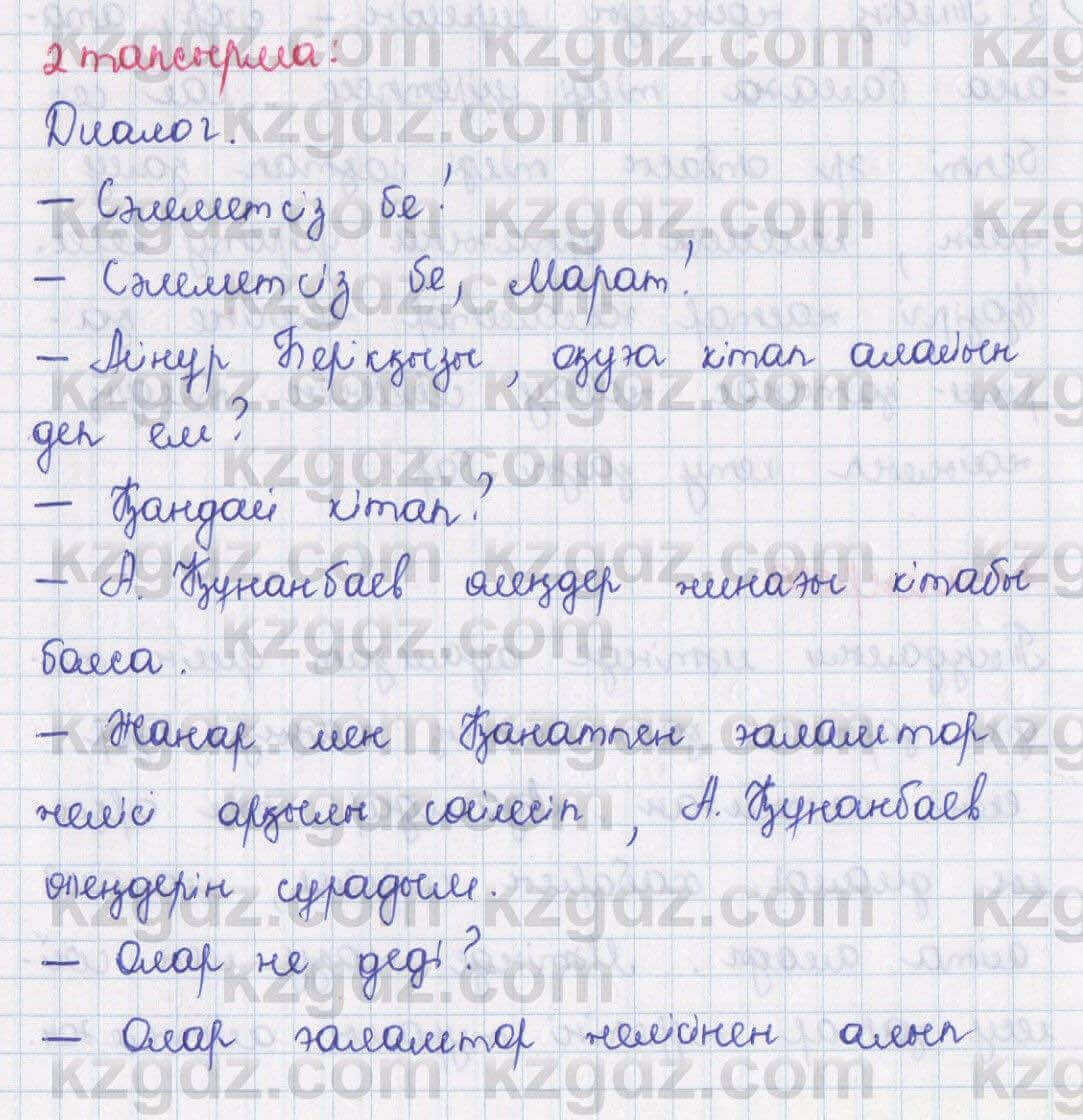 2 тапсырма:
Диалог.
– Сәлеметсіз бе!
– Сәлеметсіз бе, Марат!
– Айнұр Берікқызы, оқуға кітап алайын
деп ем?
– Қандай кітап?
– А. Құнанбаев өлеңдер жинағы кітабы
болса.
– Жанар мен Қанатпен ғаламтор
желісі арқылы сөйлесіп, А. Құнанбаев
өлеңдерін сұрадым.
– Олар не деді?
– Олар ғаламтор желісінен алып
kzgdz.com